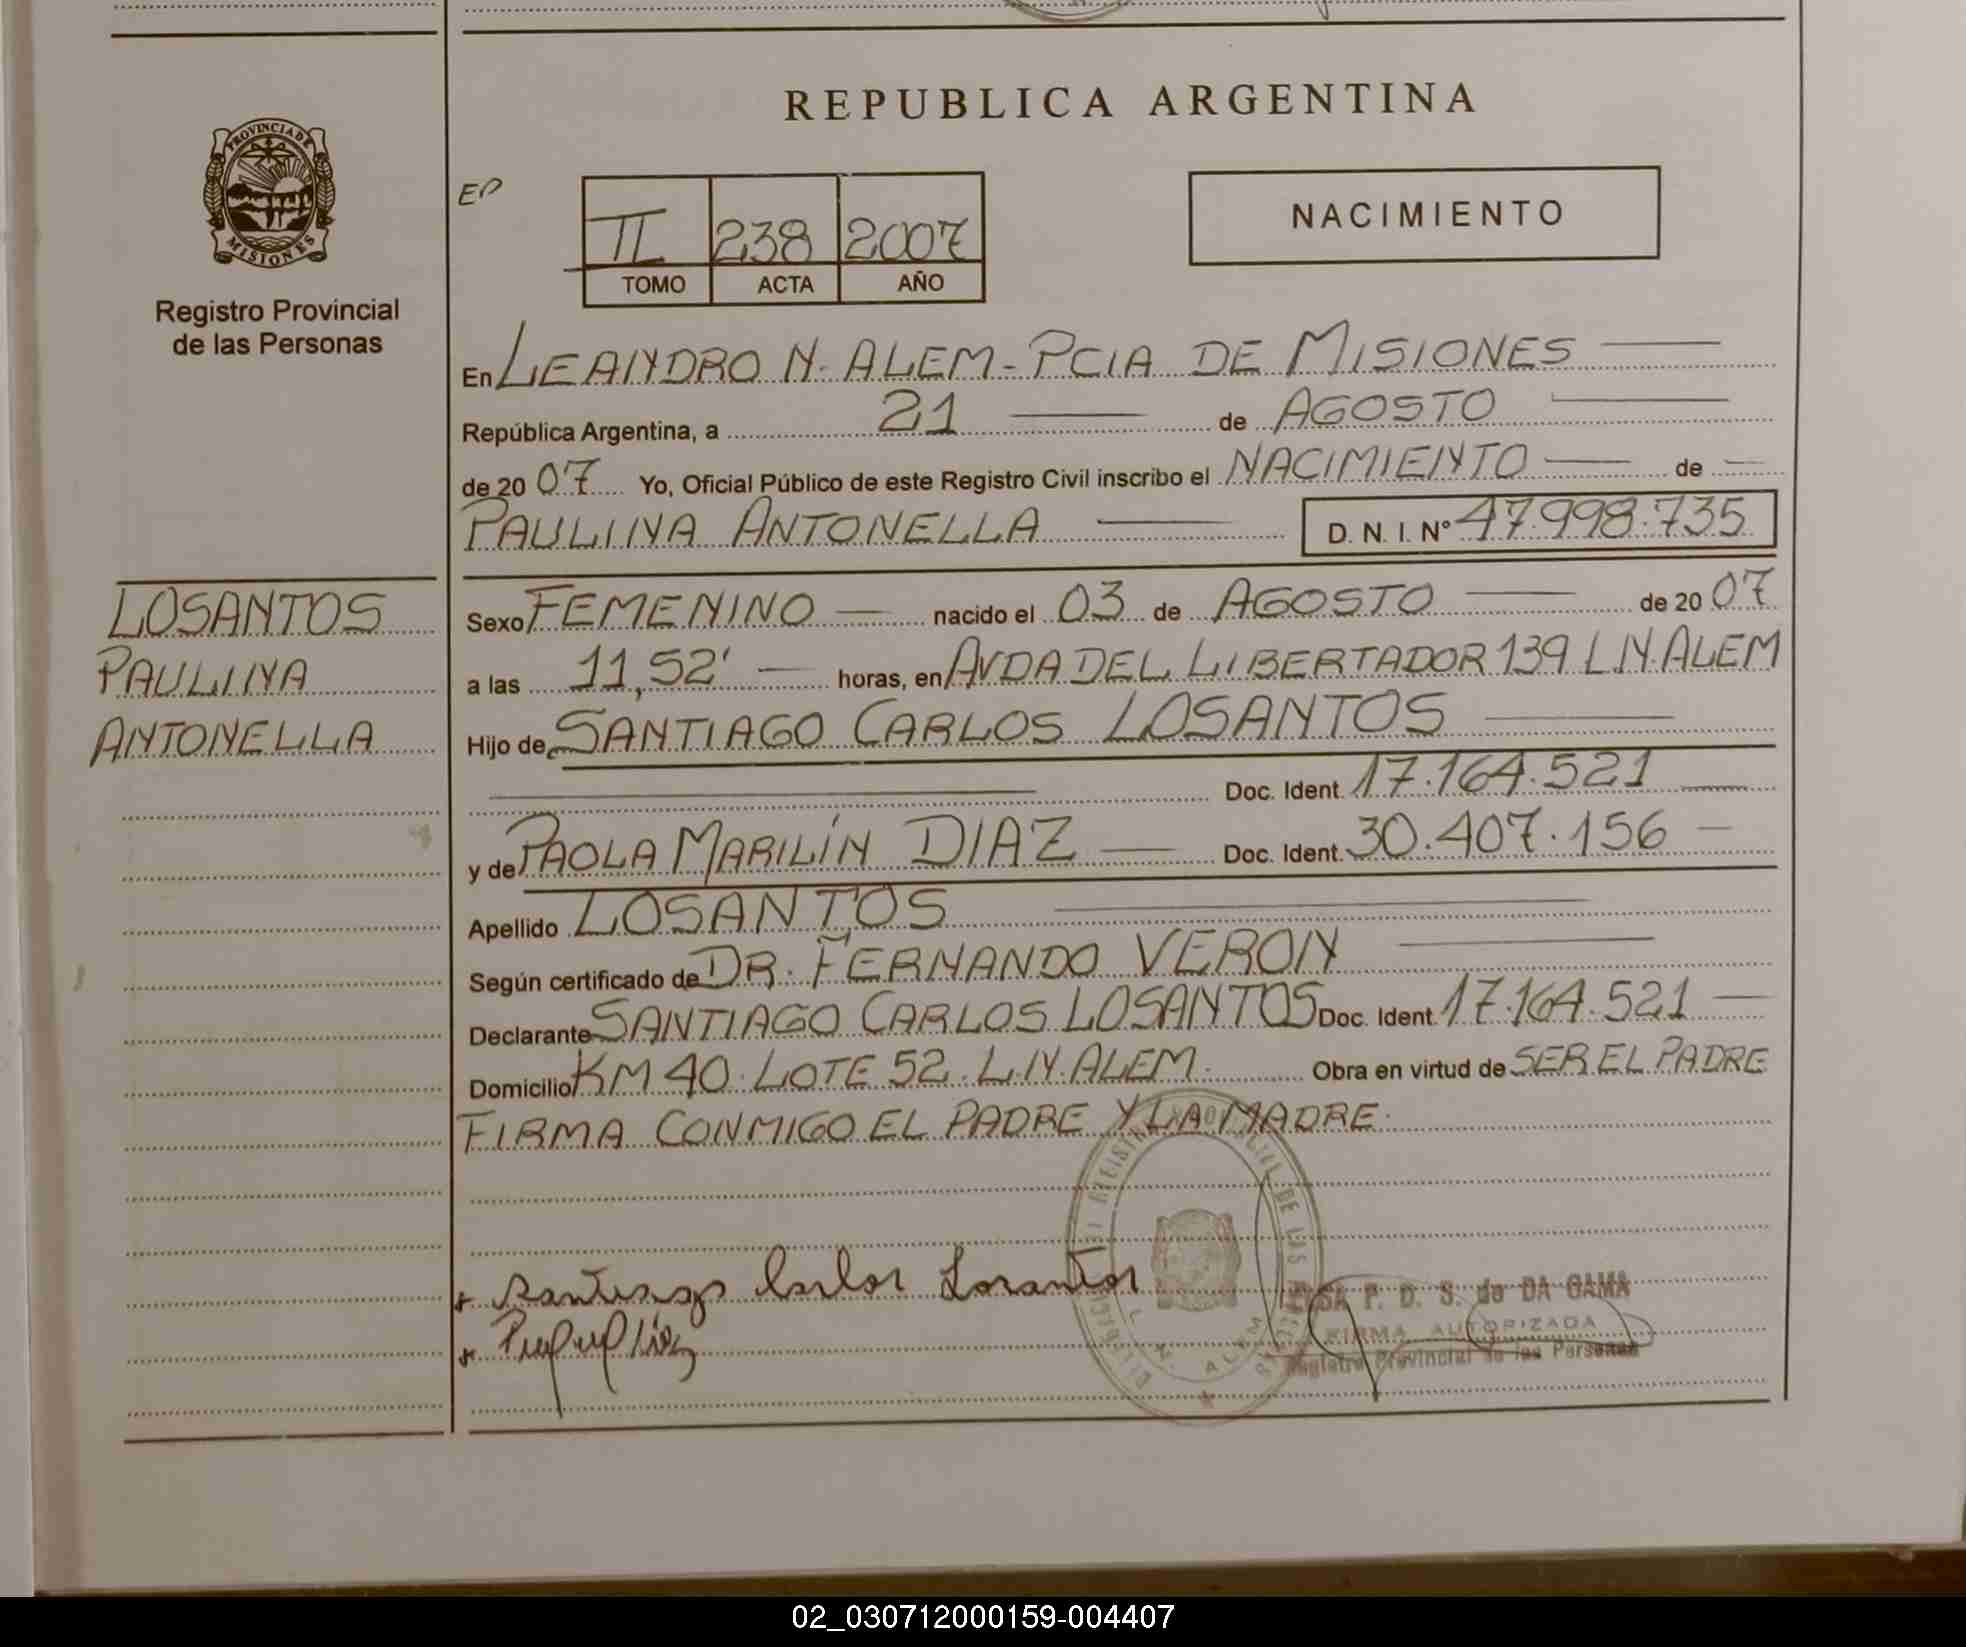 REPUBLICA ARGENTINA
PROVINCIA DE
MISIONES
Registro Provincial
de las Personas
EP
II 238 2007
TOMO ACTA AÑO
NACIMIENTO
En LEANDRO N. ALEM - PCIA DE MISIONES
República Argentina, a 21 de AGOSTO
de 2007 Yo, Oficial Público de este Registro Civil inscribo el NACIMIENTO de
PAULINA ANTONELLA D. N. I. N° 47.998.735
LOSANTOS
PAULINA
ANTONELLA
Sexo FEMENINO nacido el 03 de AGOSTO de 2007
a las 11,52' horas, en AVDA DEL LIBERTADOR 139 L.N. ALEM
Hijo de SANTIAGO CARLOS LOSANTOS
Doc. Ident. 17.164.521
y de PAOLA MARILÍN DIAZ Doc. Ident. 30.407.156
Apellido LOSANTOS
Según certificado de DR. FERNANDO VERON
Declarante SANTIAGO CARLOS LOSANTOS Doc. Ident. 17.164.521
Domicilio KM 40. LOTE 52. L.N. ALEM. Obra en virtud de SER EL PADRE
FIRMA CONMIGO EL PADRE Y LA MADRE.
Santiago Carlos Losantos
P. D. S. de DA GAMA
FIRMA AUTORIZADA
Registro Provincial de las Personas
02_030712000159-004407